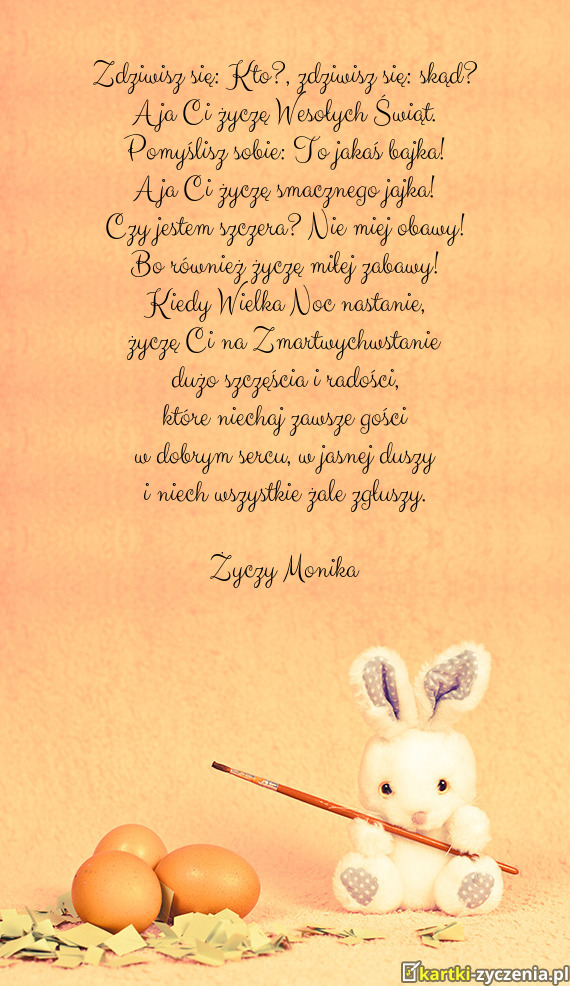 Zdziwisz się: Kto?, zdziwisz się: skąd?
A ja Ci życzę Wesołych Świąt.
Pomyślisz sobie: To jakaś bajka!
A ja Ci życzę smacznego jajka!
Czy jestem szczera? Nie miej obawy!
Bo również życzę miłej zabawy!
Kiedy Wielka Noc nastanie,
życzę Ci na Zmartwychwstanie
dużo szczęścia i radości,
które niechaj zawsze gości
w dobrym sercu, w jasnej duszy
i niech wszystkie żale zgłuszy.
Życzy Monika
kartki-zyczenia.pl